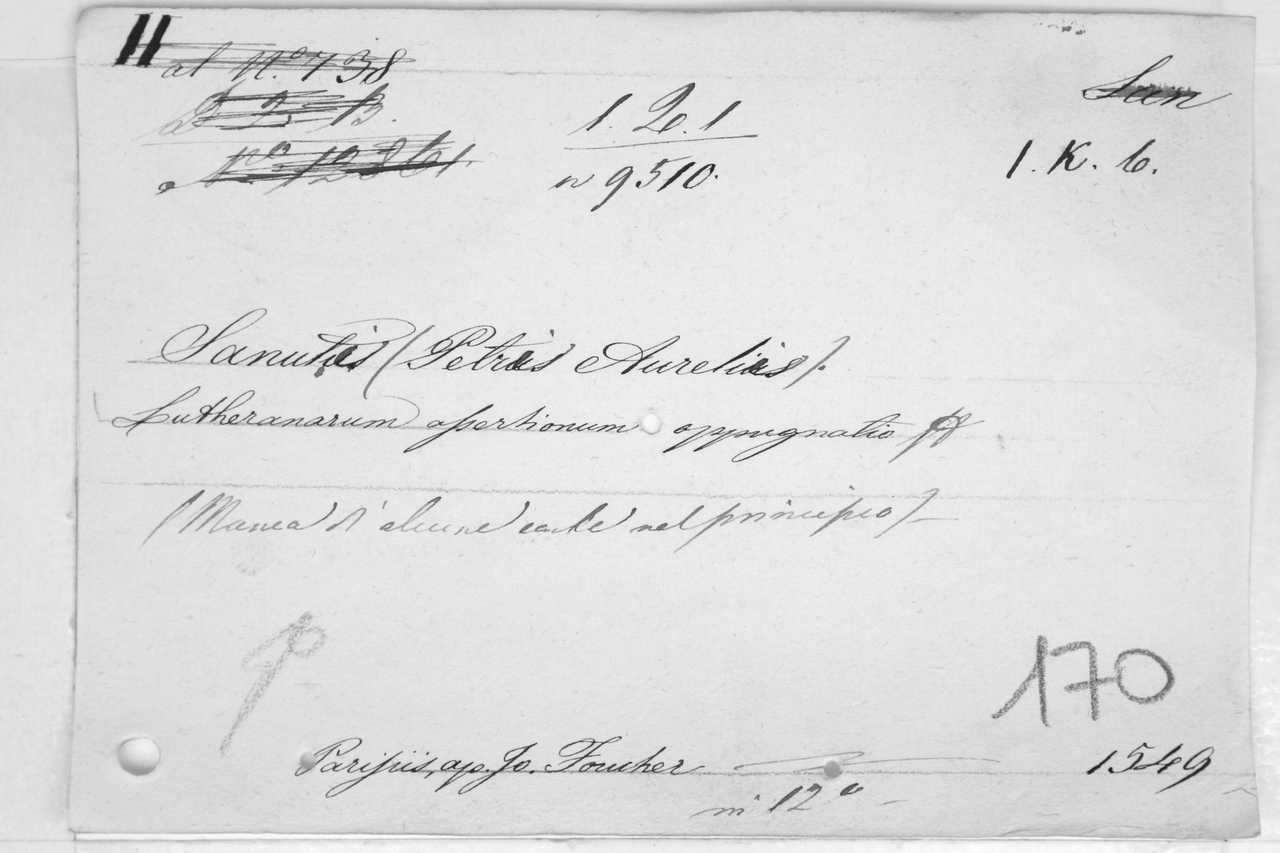 H
al N.o 738
1. 2. 1
San
n 9510.
1. K. 6.
Sanutus (Petrus Aurelius).
Lutheranarum assertionum oppugnatio
(Manca di alcune carte nel principio)
170
Parisiis, ap. Jo. Foucher 1549
in 12o